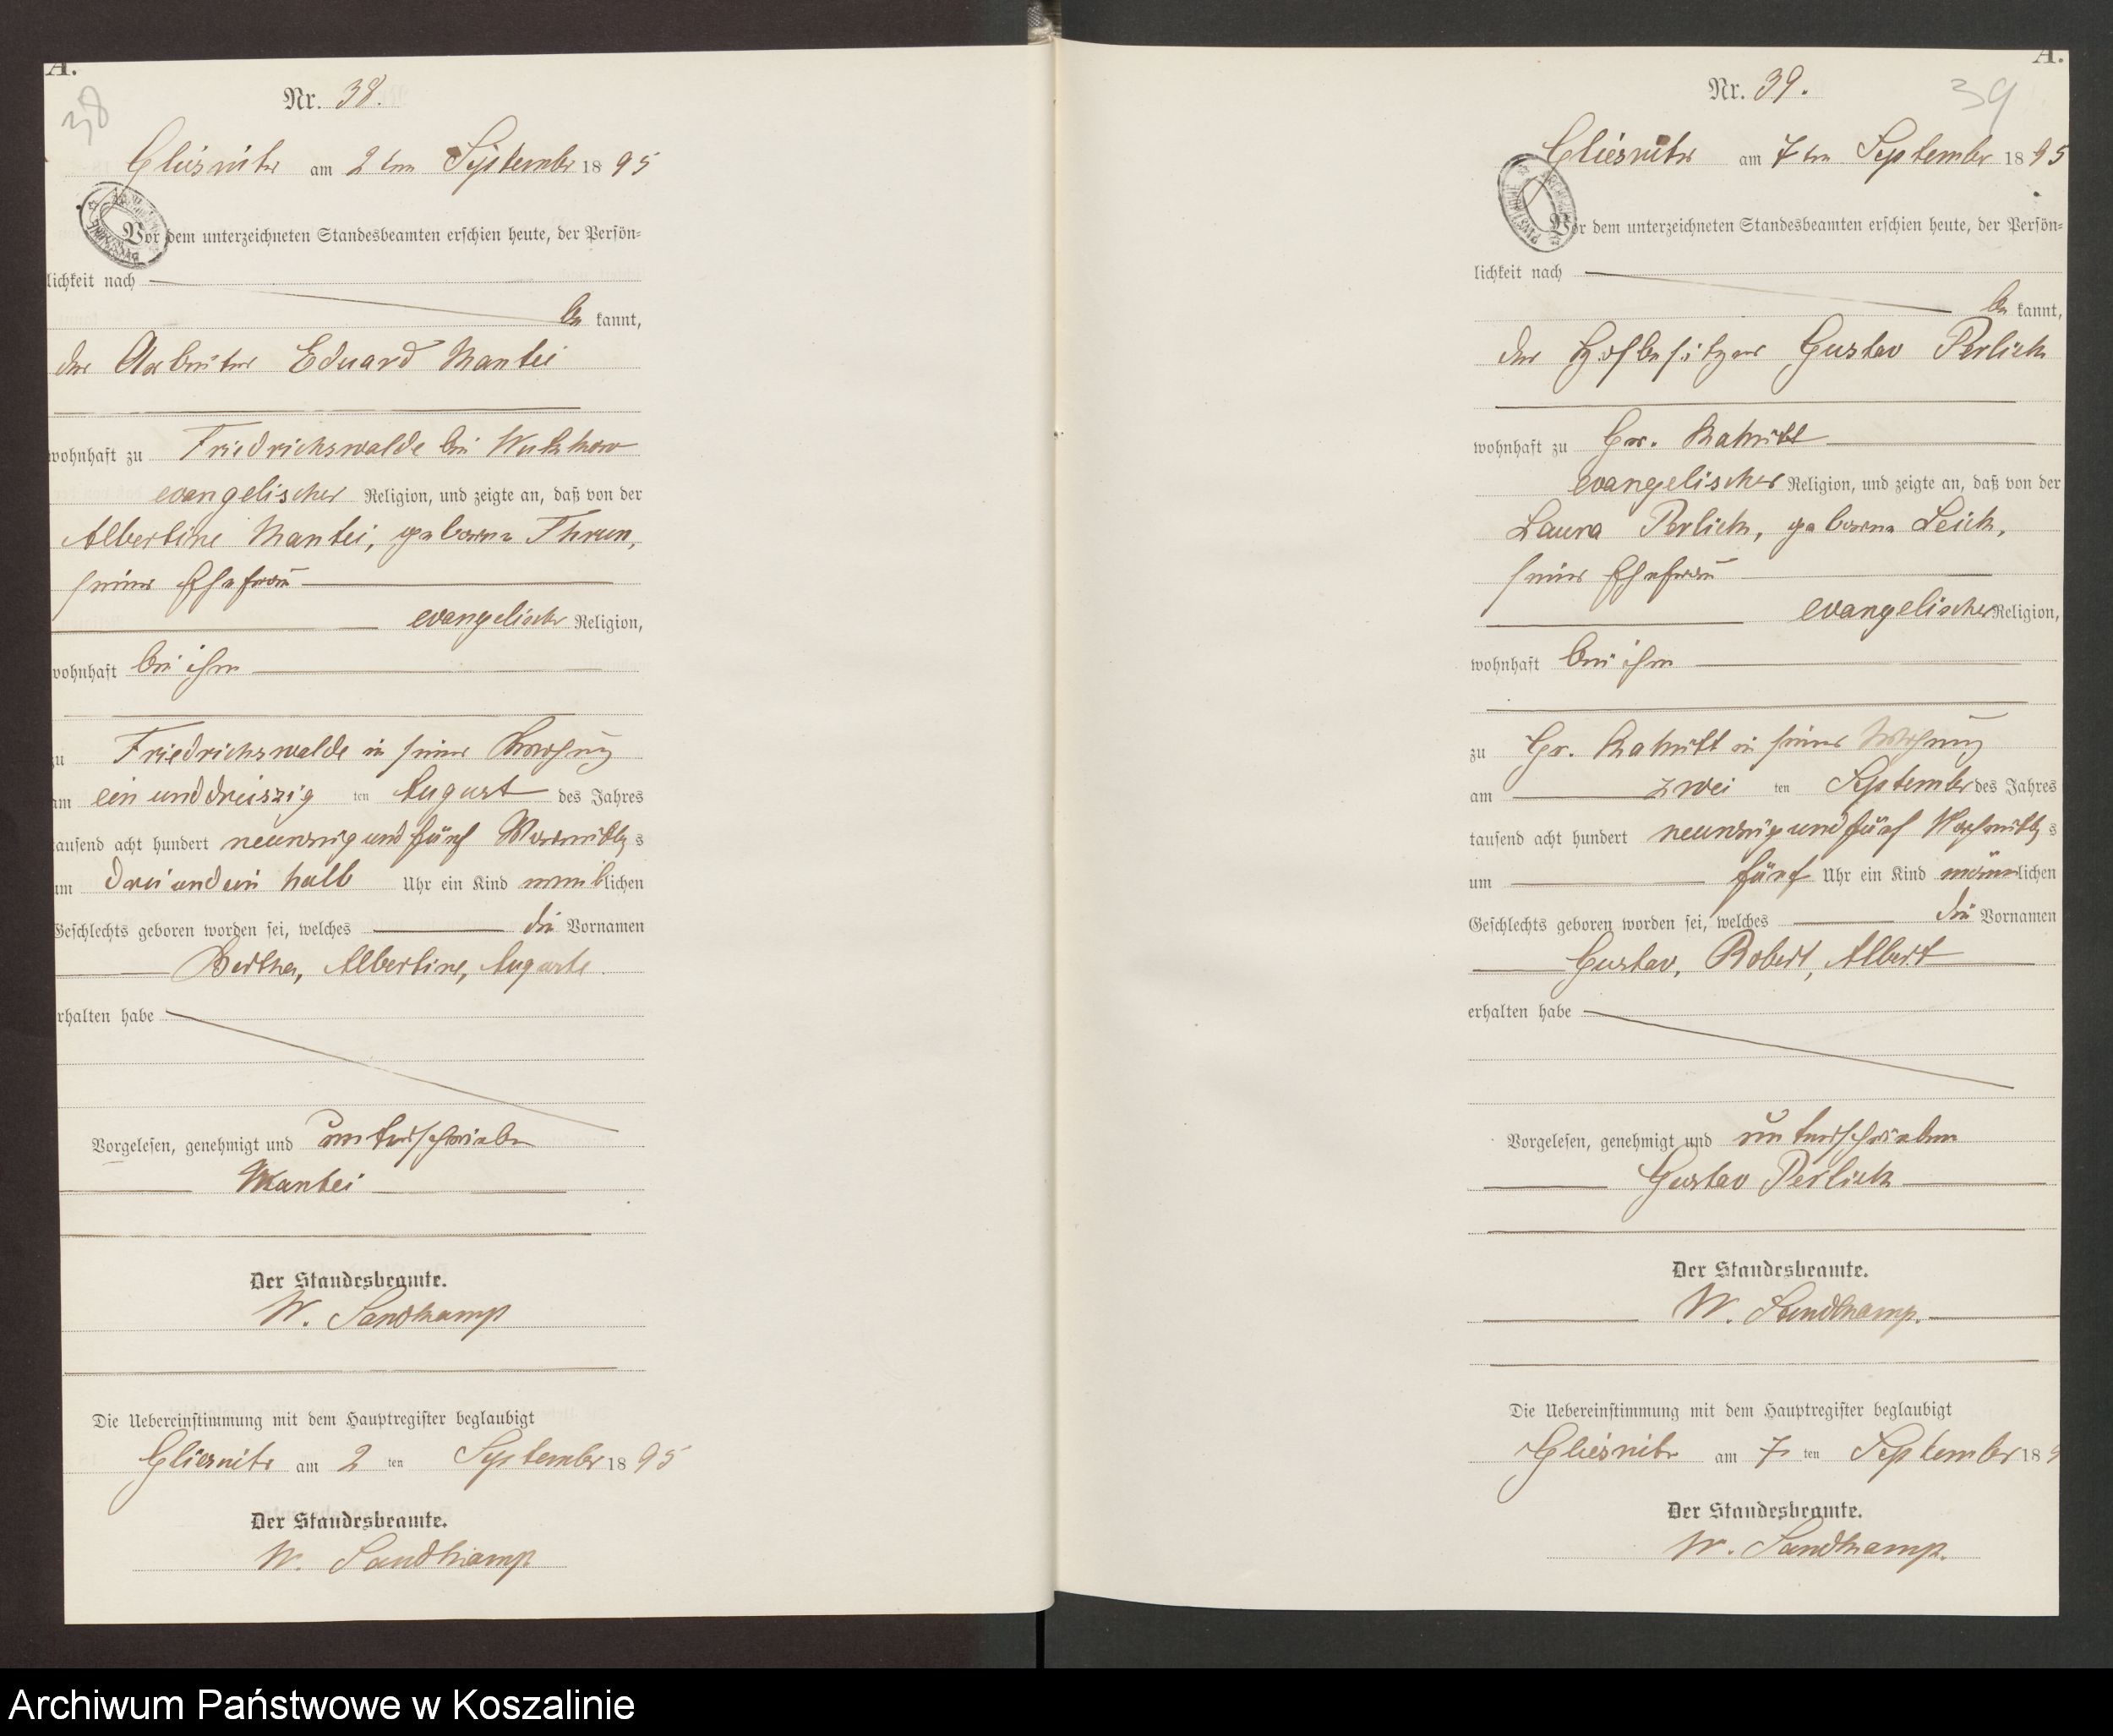 A.
38
Nr. 38.
Gliesnitz am 2ten September 1895
Vor dem unterzeichneten Standesbeamten erschien heute, der Persön-
lichkeit nach
be kannt,
der Arbeiter Eduard Mantei
wohnhaft zu Friedrichswalde bei
evangelischer Religion, und zeigte an, daß von der
Albertine Mantei, geborene Thrun,
seiner Ehefrau
evangelischer Religion,
wohnhaft bei ihm
zu Friedrichswalde in seiner Wohnung
am ein und dreiszig ten August des Jahres
tausend acht hundert neunzig und fünf Vormittags
um drei und ein halb Uhr ein Kind weiblichen
Geschlechts geboren worden sei, welches die Vornamen
Bertha, Albertine, Auguste
erhalten habe
Vorgelesen, genehmigt und unterschrieben
Mantei
Der Standesbeamte.
W. Sandkamp
Die Uebereinstimmung mit dem Hauptregister beglaubigt
Gliesnitz am 2 ten September 1895
Der Standesbeamte.
W. Sandkamp
A.
39
Nr. 39.
Gliesnitz am 7ten September 1895
Vor dem unterzeichneten Standesbeamten erschien heute, der Persön-
lichkeit nach
be kannt,
der Hofbesitzer Gustav Perlick
wohnhaft zu Gr.
evangelischer Religion, und zeigte an, daß von der
Laura Perlick, geborene Leick,
seiner Ehefrau
evangelischer Religion,
wohnhaft bei ihm
zu Gr. in seiner Wohnung
am zwei ten September des Jahres
tausend acht hundert neunzig und fünf Nachmittags
um fünf Uhr ein Kind männlichen
Geschlechts geboren worden sei, welches die Vornamen
Gustav, Robert, Albert
erhalten habe
Vorgelesen, genehmigt und unterschrieben
Gustav Perlick
Der Standesbeamte.
W. Sandkamp.
Die Uebereinstimmung mit dem Hauptregister beglaubigt
Gliesnitz am 7 ten September 189
Der Standesbeamte.
W. Sandkamp.
Archiwum Państwowe w Koszalinie